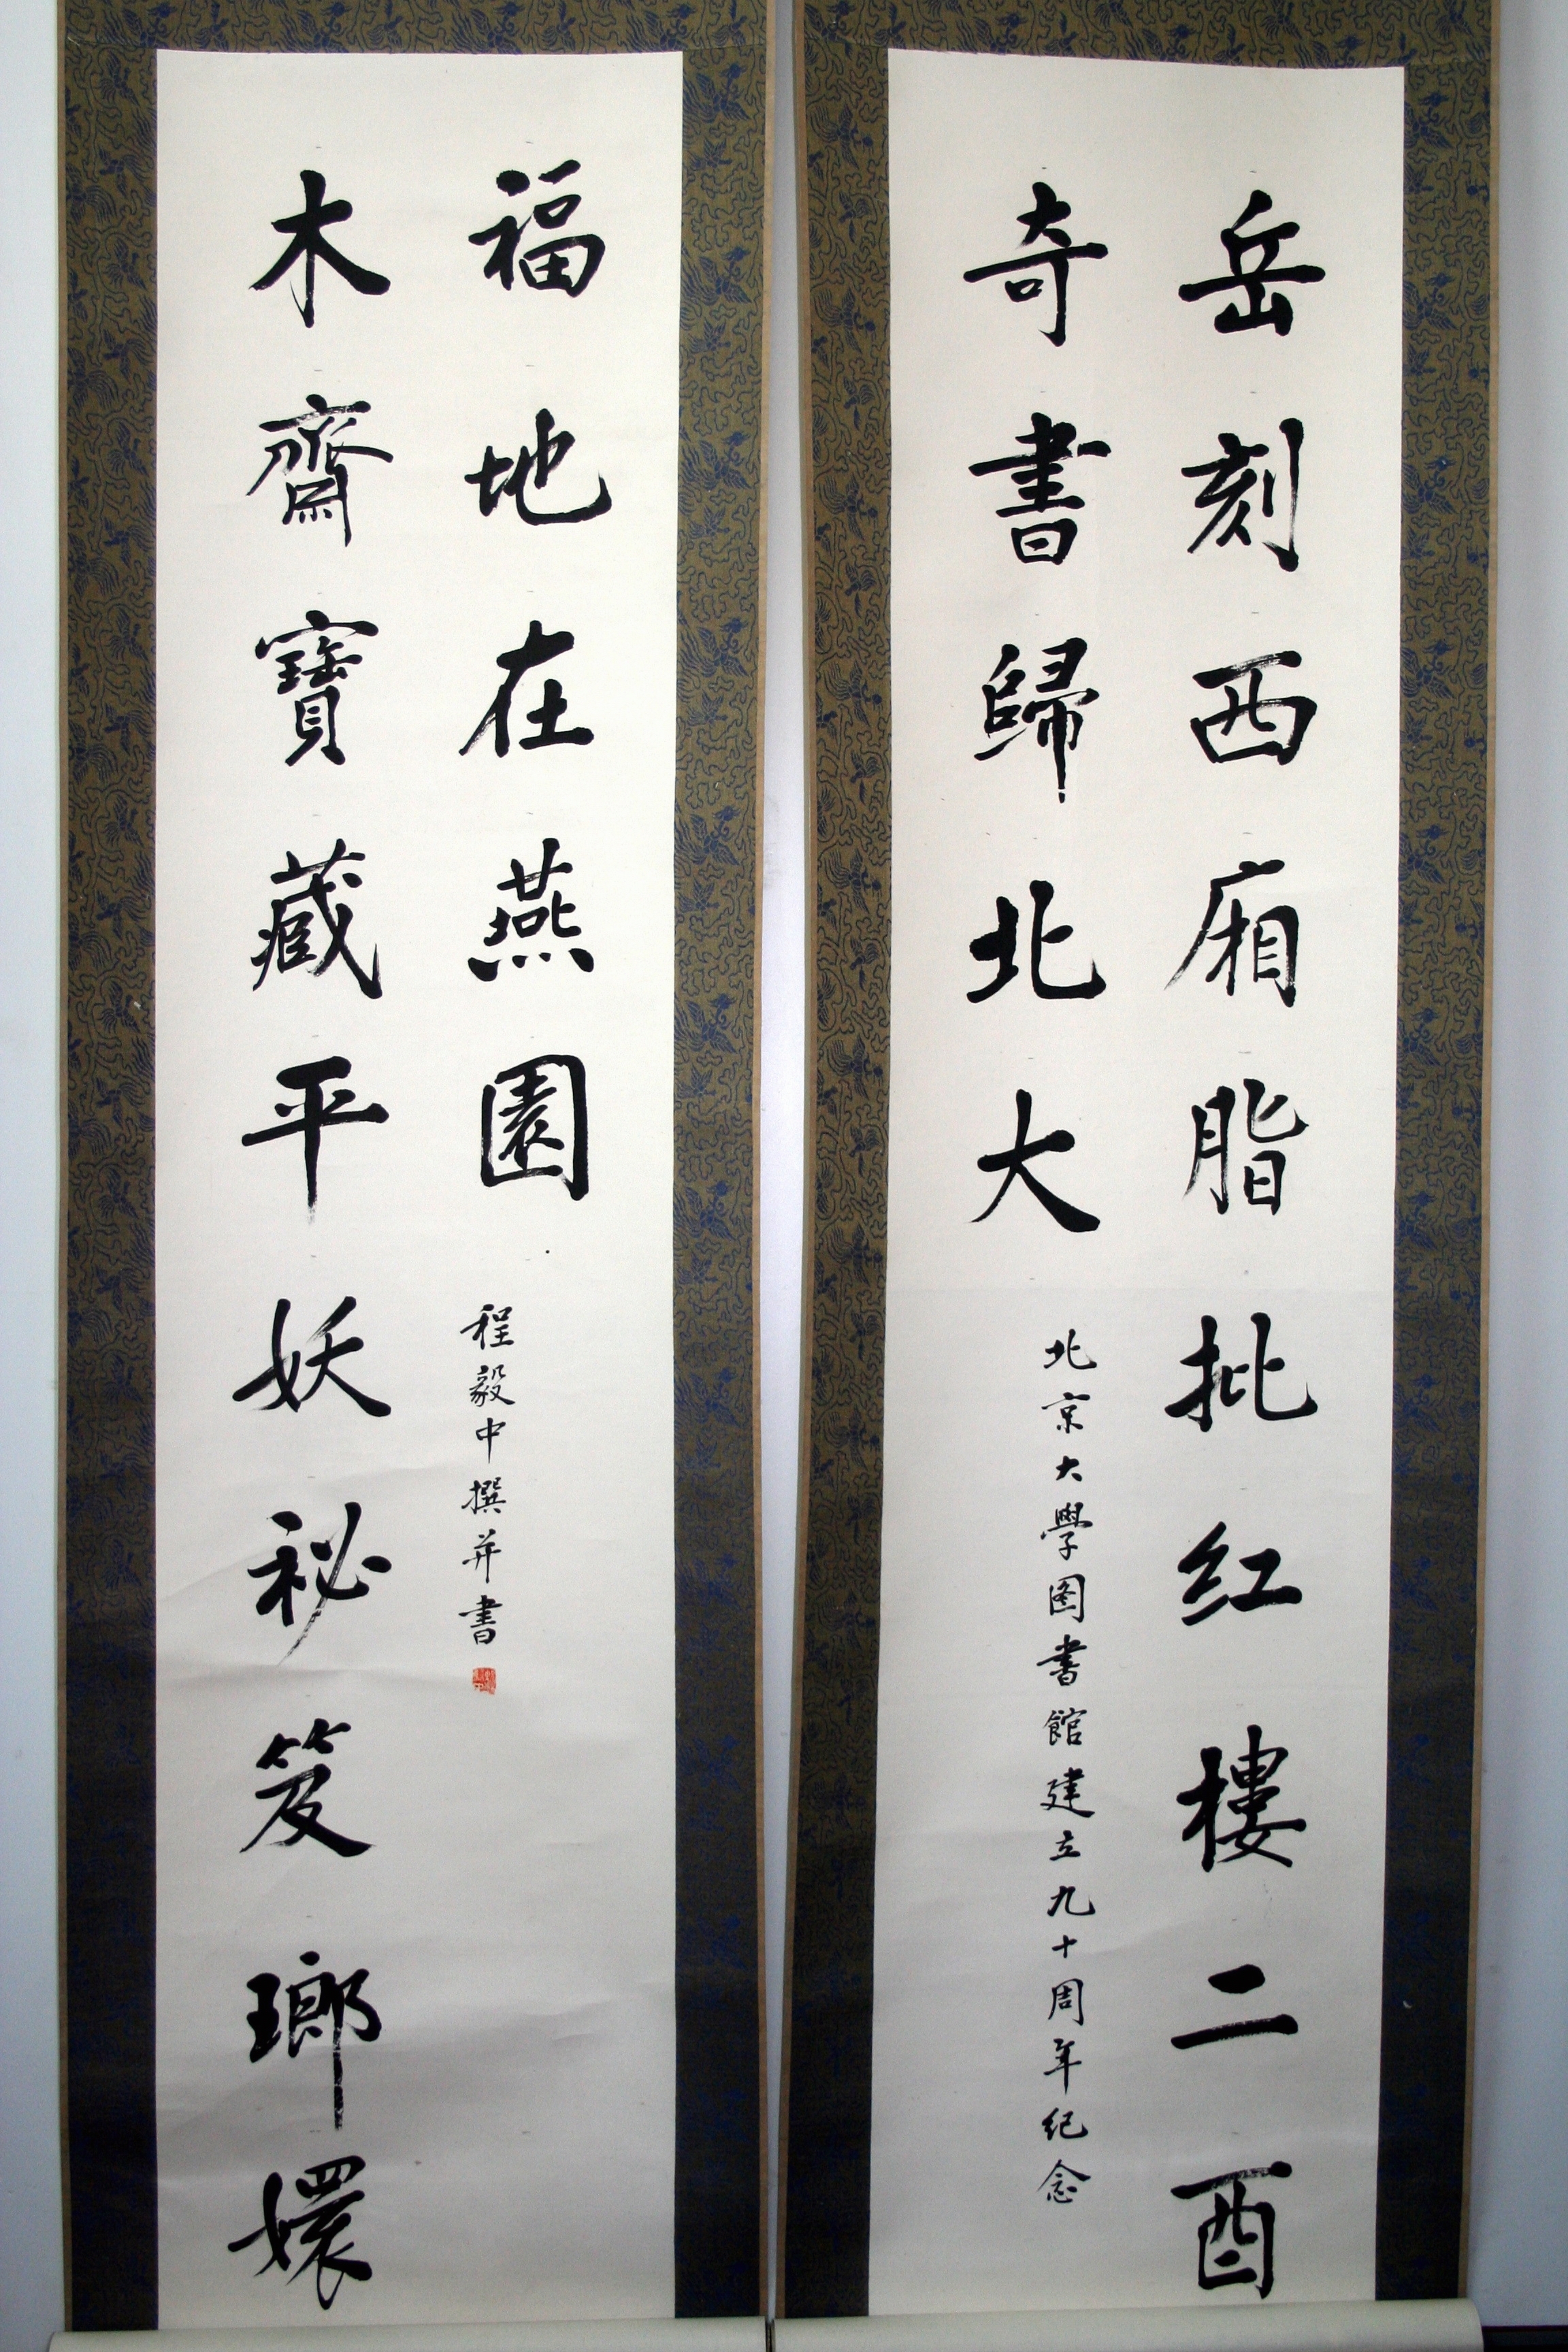 岳刻西廂脂批红樓二酉
奇書歸北大
北京大學图書館建立九十周年纪念
木齋寶藏平妖祕笈瑯嬛
福地在燕園
程毅中撰并書